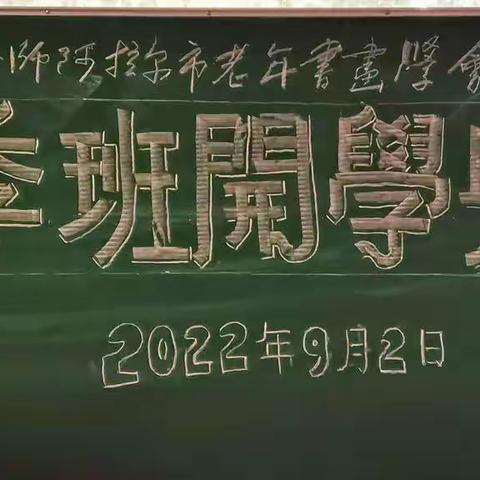 师阿拉尔市老年書畫學會
班開學
2022年9月2日